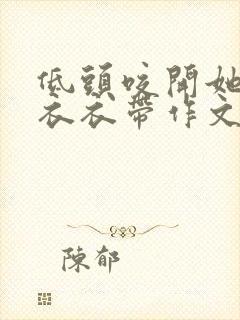 低頭咬開她
衣衣帶作文
陳郁